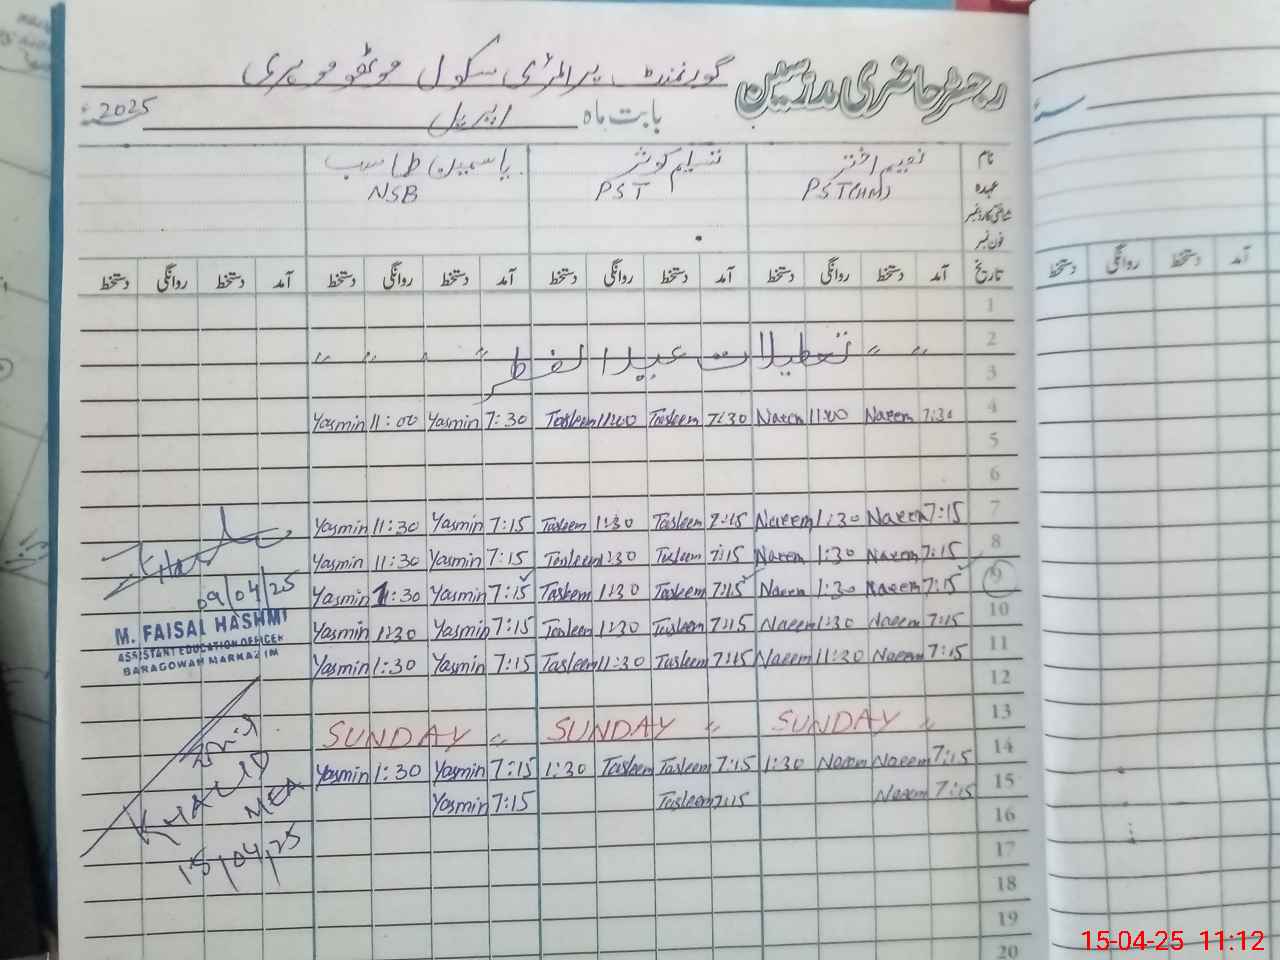 رجسٹر حاضری مدرسین گورنمنٹ پرائمری سکول
بابت ماہ اپریل 2025
نام نعیم اختر تسلیم کوثر یاسمین طاسب
عہدہ PST(HM) PST NSB
شناختی کارڈ نمبر
فون نمبر
تاریخ آمد دستخط روانگی دستخط آمد دستخط روانگی دستخط آمد دستخط روانگی دستخط آمد دستخط روانگی دستخط
1
2 〃 〃 تعطیلات عید الفطر 〃 〃 〃 〃
3
4 7:30 Naeem 11:00 Naeem 7:30 Tasleem 11:00 Tasleem 7:30 Yasmin 11:00 Yasmin
5
6
7 7:15 Naeem 1:30 Naeem 7:15 Tasleem 1:30 Tasleem 7:15 Yasmin 11:30 Yasmin
8 7:15 Naeem 1:30 Naeem 7:15 Tasleem 1:30 Tasleem 7:15 Yasmin 11:30 Yasmin
9 7:15 Naeem 1:30 Naeem 7:15 Tasleem 1:30 Tasleem 7:15 Yasmin 1:30 Yasmin
10 7:15 Naeem 1:30 Naeem 7:15 Tasleem 1:30 Tasleem 7:15 Yasmin 1:30 Yasmin
11 7:15 Naeem 11:30 Naeem 7:15 Tasleem 11:30 Tasleem 7:15 Yasmin 1:30 Yasmin
12
13 SUNDAY 〃 SUNDAY 〃 SUNDAY 〃
14 7:15 Naeem Naeem 1:30 7:15 Tasleem Tasleem 1:30 7:15 Yasmin 1:30 Yasmin
15 7:15 Naeem 7:15 Tasleem 7:15 Yasmin
16
17
18
19
20
09/04/25
M. FAISAL HASHMI
ASSISTANT EDUCATION OFFICER
BARAGOWAH MARKAZ IM
KHALID
MEA
15/04/25
دستخط روانگی دستخط آمد
15-04-25 11:12